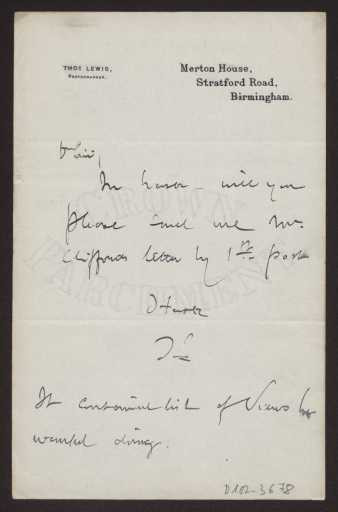 THOS LEWIS,
PHOTOGRAPHER.
Merton House,
Stratford Road,
Birmingham.
D Sir,
In haste – will you
please send me Mr.
Cliffords letter by 1st post
It contained list of Views he
wanted doing.
CROWN
PARCHMENT
D102-3678